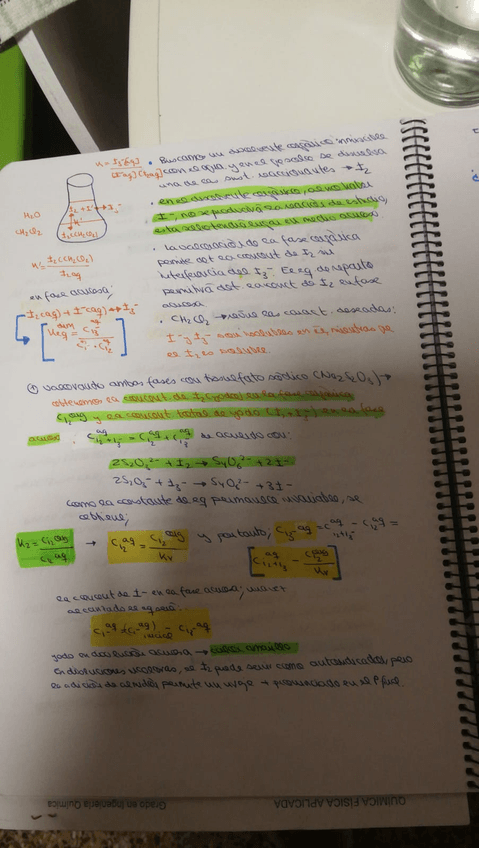 • Buscamos un disolvente orgánico inmiscible
con el agua y en el que solo se disuelva
una de las sust. reaccionantes → I2
• en el disolvente orgánico, al no haber
I-, no se producirá la reacción de estudio,
esta solo tendrá lugar en medio acuoso
• La valoración de la fase orgánica
permite det la concent de I2 sin
interferencia del I3-. El eq de reparto
permitirá det. la concent de I2 en fase
acuosa
• CH2Cl2 → reúne las caract. deseadas:
I- y I3- son insolubles en él, mientras que
el I2 es soluble.
H2O
CH2Cl2
I2 + I- → I3-
I2(CH2Cl2)
en fase acuosa:
I2(aq) + I-(aq) ⇌ I3-
① Valorando ambas fases con tiosulfato sódico (Na2S2O3) →
obtenemos la concent de I2 (yodo) en la fase orgánica
C I2 org y la concent total de yodo (I2 + I3-) en la fase
acuosa: C I2+I3- aq = C I2 aq + C I3- aq de acuerdo con:
2S2O3 2- + I2 → S4O6 2- + 2I-
2S2O3 2- + I3- → S4O6 2- + 3I-
Como la constante de eq permanece invariable, se
obtiene;
→ C I2 aq = C I2 org / Kr y por tanto, C I3- aq = C I2+I3- aq - C I2 aq =
[C I2+I3- aq - C I2 org / Kr]
La concent de I- en la fase acuosa, una vez
alcanzado el eq será..
C I- aq = (C I- aq) inicial - C I3- aq
yodo en disolución acuosa → color amarillo
En disoluciones incoloras, el I2 puede servir como autoindicador, pero
la adición de almidón permite un viraje + pronunciado en el P. final
QUÍMICA FÍSICA APLICADA
Grado en Ingeniería Química